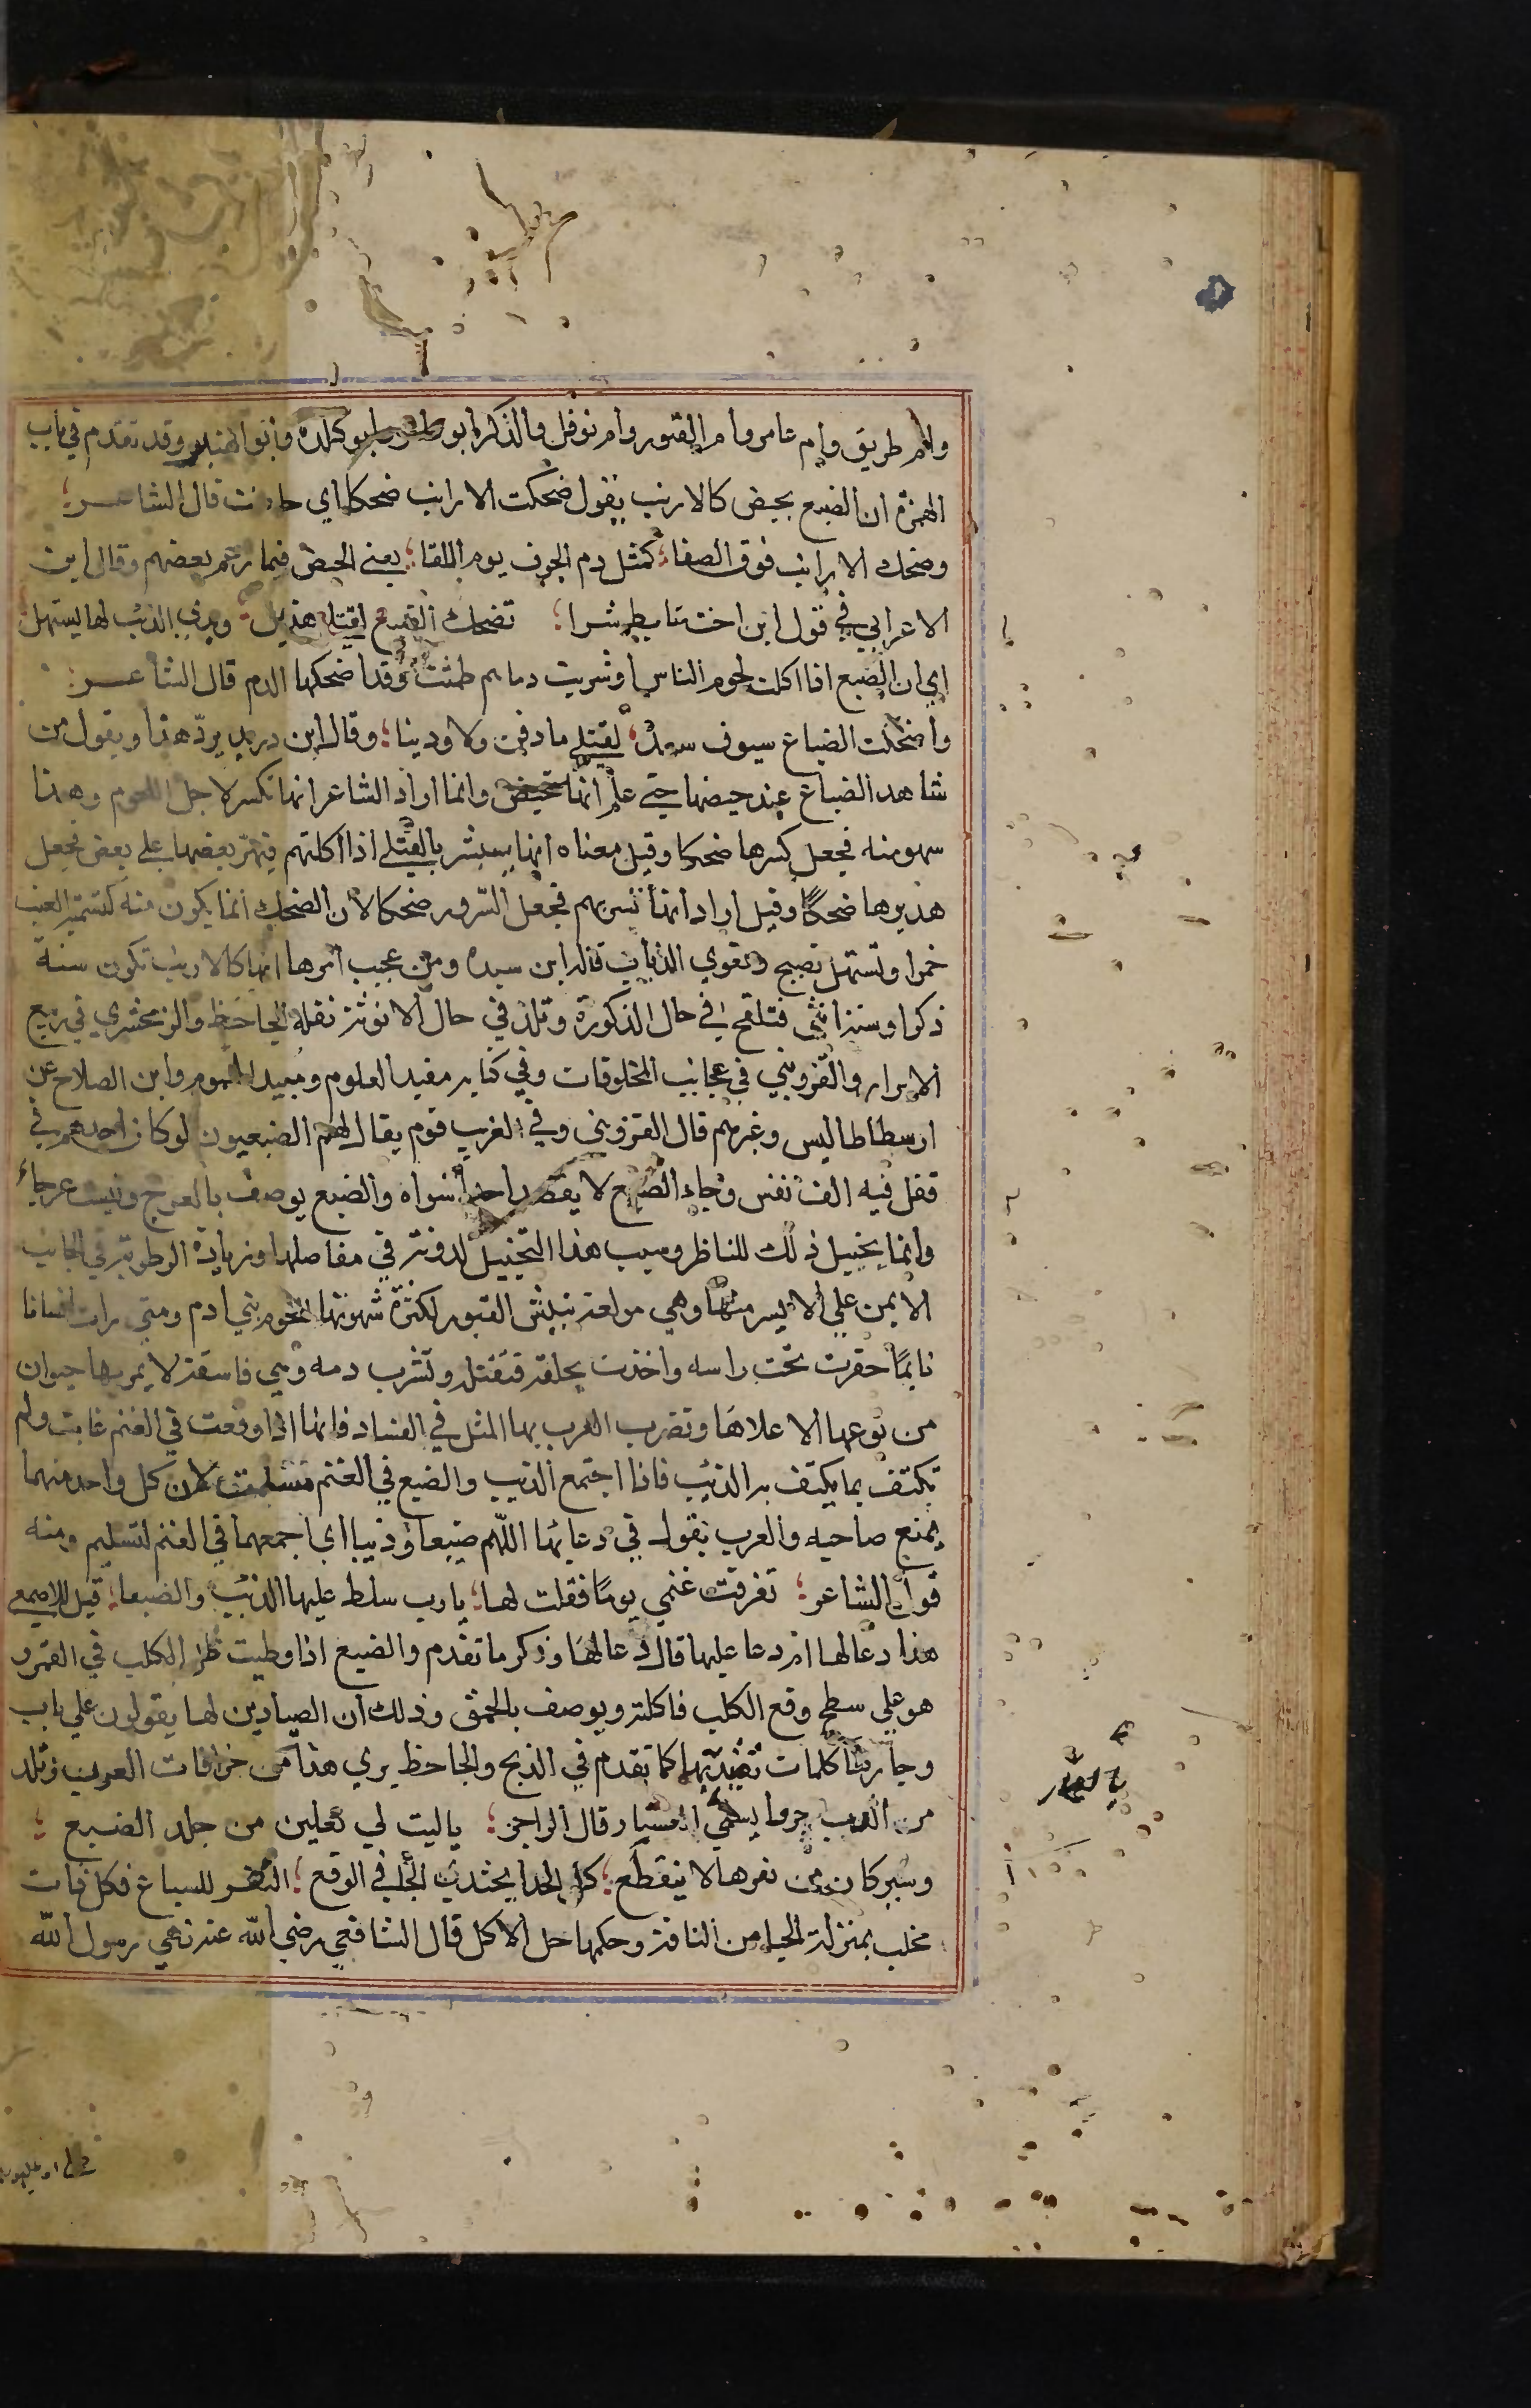 وام طريق وام عامر وام القبور وام نوفل والذكر ابو عامر وابو كلدة وابو الهنبر وقد تقدم في باب
الهمزة ان الضبع بحيض كالارنب يقول ضحكت الارانب ضحكا اي حاضت قال الشاعـــر؛
وضحك الارانب فوق الصفا؛ كمثل دم الجوف يوم اللقا؛ يعني الحيض فيما زعم بعضهم وقال ابن
الاعرابي في قول ابن اخت تابط شرا؛ تضحك الضبع لقتلى هذيل؛ وتري الذئب لها يستهل
اي ان الضبع اذا اكلت لحوم الناس اوشربت دماهم طمثت وقد اضحكها الدم قال الشاعـــر؛
واضحكت الضباع سيوف سعد؛ لقتلي ما دفن ولا ودينا؛ وقال ابن دريد يردّ هذا ويقول من
شاهد الضباع عند حيضها حتى علم انها تحيض وانما اراد الشاعر انها تكسر لاجل اللحوم وهذا
سهو منه فجعل كسرها ضحكا وقيل معناه انها يستبشر بالقتلي اذا اكلتهم فيهر بعضها علي بعض فجعل
هذيرها ضحكًا وقيل اراد انها تسر بهم فجعل السّرور ضحكا لان الضحك انما يكون منه كتسمية العنب
خمرا وتستهل تصيح وتعوي الذياب قاله ابن سيده ومن عجيب امرها انها كالارنب تكون سنة
ذكرا وسنة انثي فتلقح في حال الذكورة وتلد في حال الانوثة نقله الجاحظ والزمخشري في ربيع
الابرار والقزويني في عجائب المخلوقات وفي كتابه مفيد العلوم ومبيد الهموم وابن الصلاح عن
ارسطاطاليس وغيرهم قال القزويني وفي العرب قوم يقال لهم الضبعيون لو كان احدهم في
قفل فيه الف نفس وجاء الضبع لا يقصد احدا سواه والضبع يوصف بالعرج وليست عرجاء
وانما يخيل ذلك للناظر وسبب هذا التخييل لدونة في مفاصلها وزيادة الرطوبة في الجانب
الايمن علي الايسر منها وهي مولعة بنبش القبور لكثرة شهوتها للحوم بني ادم ومتي رات انسانا
نايمًا حفرت تحت راسه واخذت بحلقه فتقتله وتشرب دمه وهي فاسقة لا يمر بها حيوان
من نوعها الا علاها وتضرب العرب بها المثل في الفساد فانها اذا وقعت في الغنم عاثت ولم
تكتف بما يكتف به الذئب فاذا اجتمع الذيب والضبع في الغنم سلمت لان كل واحد منهما
يمنع صاحبه والعرب تقول في دعائها اللّهم ضبعا وذيبا اي اجمعهما في الغنم لتسليم ومنه
قول الشاعر؛ تفرقت غنمي يومًا فقلت لها؛ يا رب سلط عليها الذئب والضبعا؛ قيل للاصمعي
هذا دعا لها ام دعا عليها قال دعا لها وذكر ما تقدم والضبع اذا وطيت ظل الكلب في القمر و
هو علي سطح وقع الكلب فاكلته ويوصف بالحمق وذلك ان الصيادين لها يقولون علي باب
وجارها كلمات تصيدبها كما تقدم في الذبح والجاحظ يري هذا من خرافات العرب وتلد
من الذيب جروا يسمي العسبار قال الراجز؛ يا ليت لي نعلين من جلد الضبع؛
وشركا من نفرها لا ينقطع؛ كل الحذا يحتذي الحافي الوقع؛ الثفر للسباع فكل ذات
مخلب بمنزلة الحيا من الناقة وحكمها حل الاكل قال الشافعي رضي الله عنه نهي رسول الله